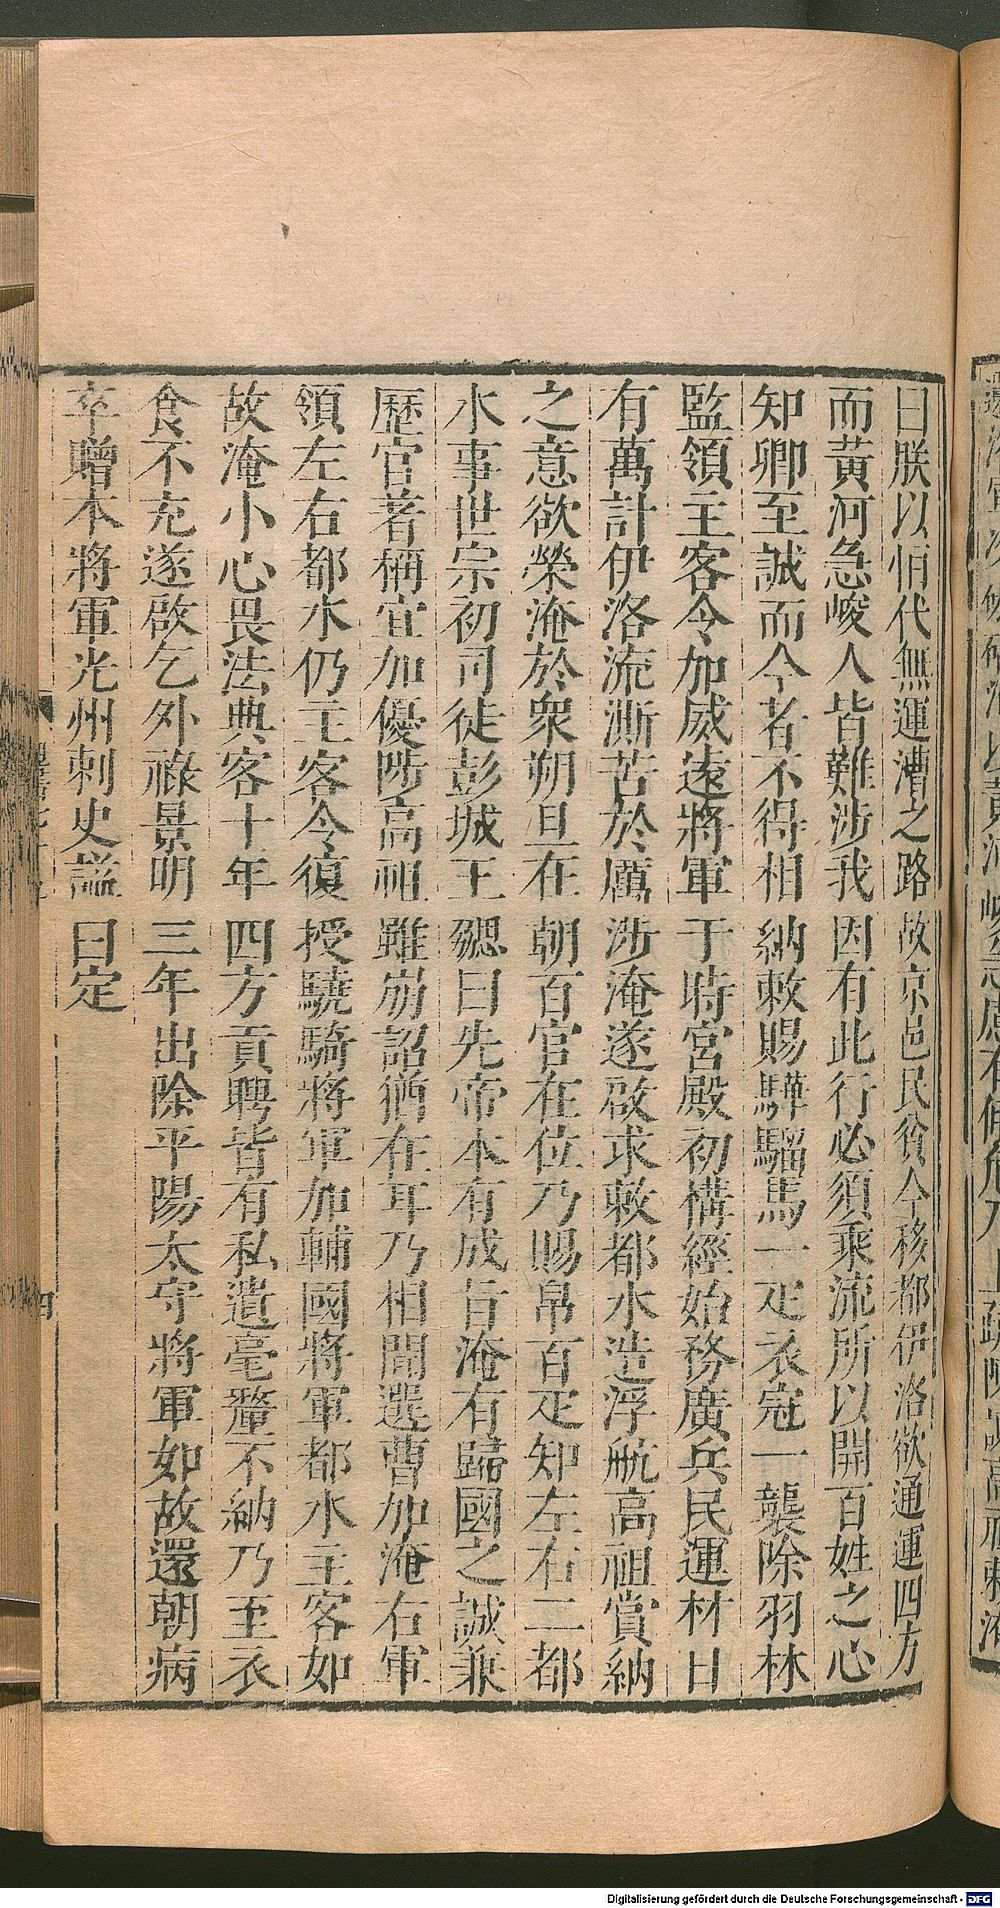 曰朕以恒代無運漕之路故京邑民貧今移都伊洛欲通運四方
而黃河急峻人皆難涉我因有此行必須乘流所以開百姓之心
知卿至誠而今者不得相納敕賜驊騮馬一疋衣冠一襲除羽林
監領主客令加威遠將軍于時宮殿初構經始務廣兵民運材日
有萬計伊洛流澌苦於厲涉淹遂啟求敕都水造浮航高祖賞納
之意欲榮淹於眾朔旦在朝百官在位乃賜帛百疋知左右二都
水事世宗初司徒彭城王勰曰先帝本有成旨淹有歸國之誠兼
歷官著稱宜加優陟高祖雖崩詔猶在耳乃相聞選曹加淹右軍
領左右都水仍主客令復授驍騎將軍加輔國將軍都水主客如
故淹小心畏法典客十年四方貢聘皆有私遺毫釐不納乃至衣
食不充遂啟乞外祿景明三年出除平陽太守將軍如故還朝病
卒贈本將軍光州刺史諡曰定
四
Digitalisierung gefördert durch die Deutsche Forschungsgemeinschaft - DFG